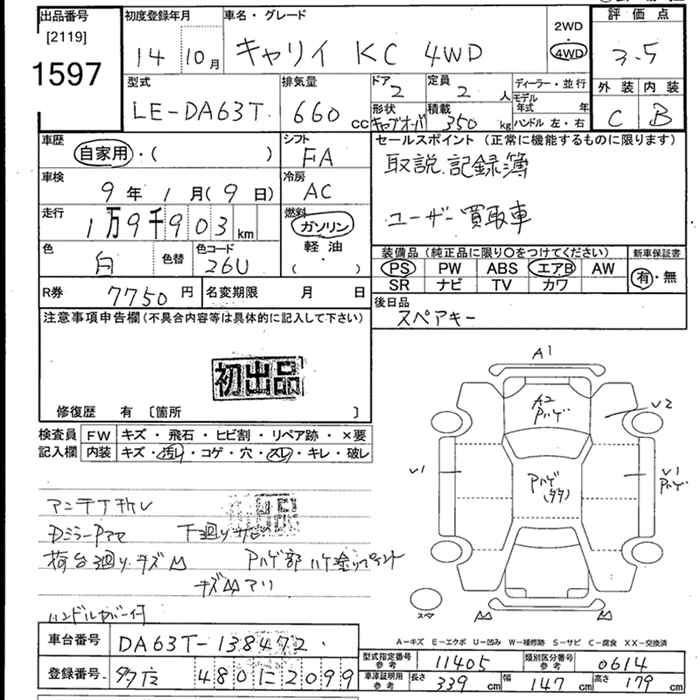 出品番号 初度登録年月 車名・グレード 評価点
[2119] 14 10月 キャリイ KC 4WD 2WD 4WD 3.5
1597
型式 排気量 ドア 定員 ディーラー・並行 外装 内装
LE-DA63T 660cc 2 2人 モデル年式 年 C B
形状 積載
キャブオーバ 350kg ハンドル 左・右
車歴 シフト セールスポイント(正常に機能するものに限ります)
自家用・( ) FA 取説.記録簿
車検 冷房
9年 1月(9日) AC ユーザー買取車
走行 燃料
1万9千903km ガソリン
色 色替 色コード 軽油 装備品(純正品に限り○をつけてください) 新車保証書
白 26U ( ・ ) PS PW ABS エアB AW 有・無
SR ナビ TV カワ
R券 7750円 名変期限 月 日 後日品
注意事項申告欄(不具合内容等は具体的に記入して下さい) スペアキー
初出品
修復歴 有 〔箇所 〕
検査員 FW キズ・飛石・ヒビ割・リペア跡・×要
記入欄 内装 キズ・汚レ・コゲ・穴・スレ・キレ・破レ
A1
A2
V2
V1
V1
アンテナ
Dミラー 下廻りサビ
荷台廻りキズ
ハンドルカバー付
スペア
A-キズ E-エクボ U-凹み W-補修跡 S-サビ C-腐食 XX-交換済
車台番号 DA63T-138472
型式指定番号 参考 11405 類別区分番号 参考 0614
登録番号 480に2099
車庫証明用 参考 長さ 339cm 幅 147cm 高さ 179cm